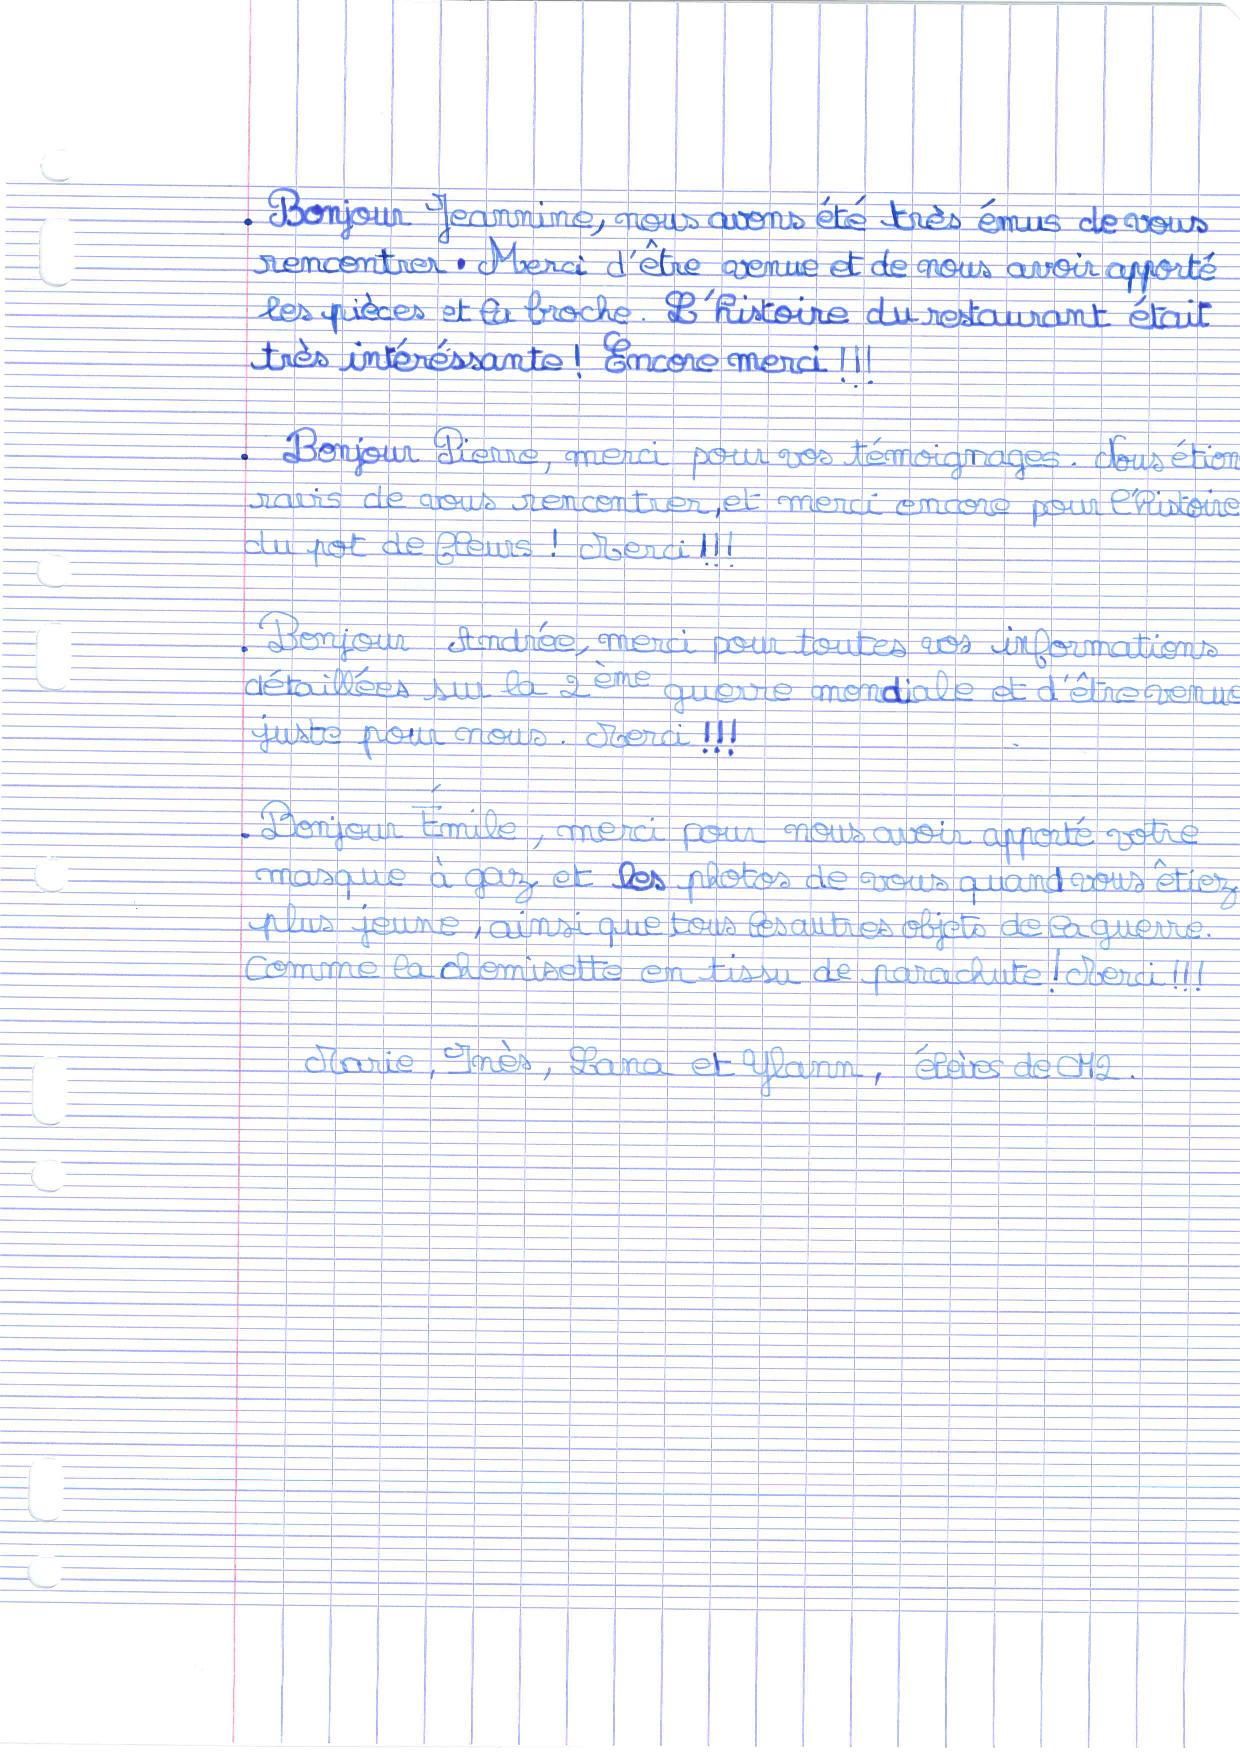 . Bonjour Jeannine, nous avons été très émus de vous
rencontrer. Merci d'être venue et de nous avoir apporté
les pièces et la broche. L'histoire du restaurant était
très intéréssante ! Encore merci !!!
. Bonjour Pierre, merci pour vos témoignages. Nous étion
ravis de vous rencontrer, et merci encore pour l'histoire
du pot de fleurs ! Merci !!!
. Bonjour Andrée, merci pour toutes vos informations
détaillées sur la 2ème guerre mondiale et d'être venue
juste pour nous. Merci !!!
. Bonjour Émile, merci pour nous avoir apporté votre
masque à gaz et les photos de vous quand vous étiez
plus jeune, ainsi que tous les autres objets de la guerre.
Comme la chemisette en tissu de parachute ! Merci !!!
Marie, Inès, Lana et Ylann, élèves de CM2.